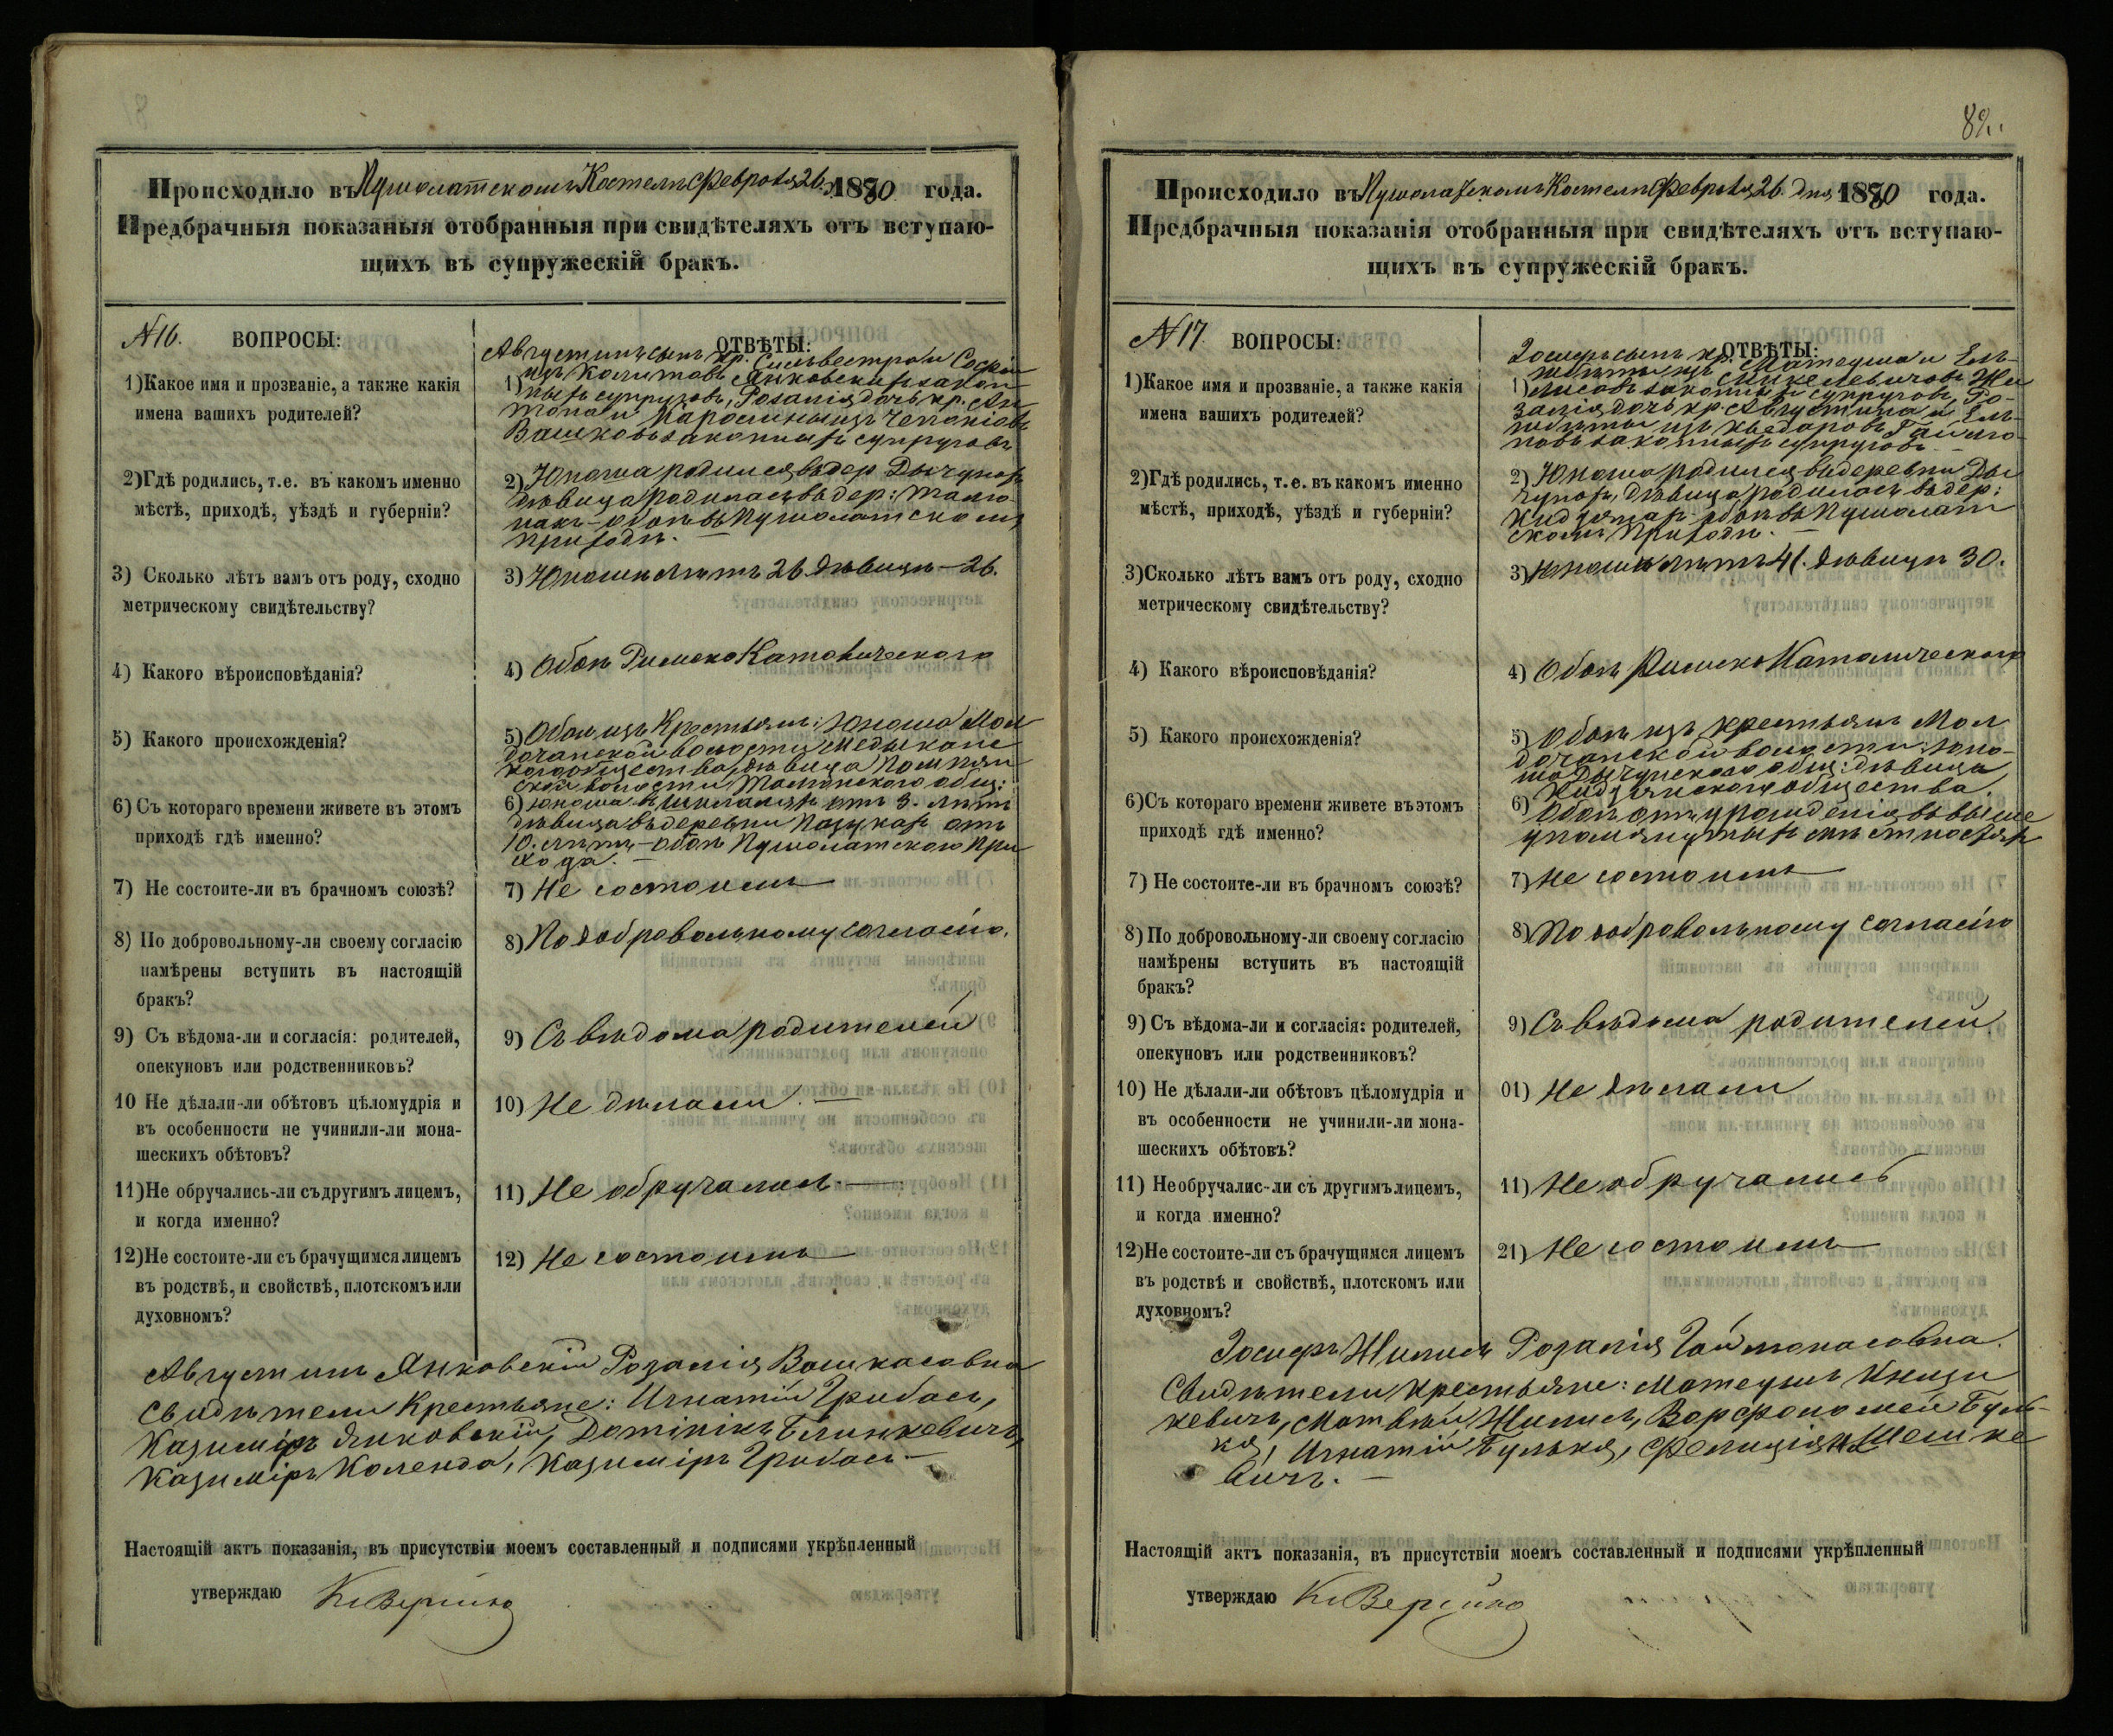 Происходило въ Пушолатскомъ Костелѣ Февраля 26 1880 года.
Предбрачныя показаныя отобранныя при свидѣтеляхъ отъ вступаю-
щихъ въ супружескій бракъ.
№16. ВОПРОСЫ:
ОТВѢТЫ:
1) Какое имя и прозваніе, а также какія
имена вашихъ родителей?
Августинъ сынъ кр. Сильвестра и Софіи
1) изъ Янковскихъ закон-
ныхъ супруговъ, Розалія дочь кр. Ан
тона и Каролины изъ
Вашковъ законныхъ супруговъ
2) Гдѣ родились, т.е. въ какомъ именно
мѣстѣ, приходѣ, уѣздѣ и губерніи?
2) Юноша родился въ дер.
дѣвица родилась въ дер:
обоѣ въ Пушолатскомъ
приходѣ.
3) Сколько лѣтъ вамъ отъ роду, сходно
метрическому свидѣтельству?
3) Юноша лѣтъ 26 дѣвицѣ - 26.
4) Какого вѣроисповѣданія?
4) Обоѣ Римско Католическаго
5) Какого происхожденія?
5) Обоѣ изъ Крестьянъ: юноша
волости
общества, дѣвица
волости общ:
6) Съ котораго времени живете въ этомъ
приходѣ гдѣ именно?
6) юноша въ отъ 3. лѣтъ
дѣвица въ деревни отъ
10. лѣтъ - обоѣ Пушолатскаго При
хода. —
7) Не состоите-ли въ брачномъ союзѣ?
7) Не состоимъ
8) По добровольному-ли своему согласію
намѣрены вступить въ настоящій
бракъ?
8) По добровольному согласію.
9) Съ вѣдома-ли и согласія: родителей,
опекуновъ или родственниковъ?
9) Съ вѣдома родителей
10 Не дѣлали-ли обѣтовъ цѣломудрія и
въ особенности не учинили-ли мона-
шескихъ обѣтовъ?
10) Не дѣлали. —
11) Не обручались-ли съ другимъ лицемъ,
и когда именно?
11) Не обручались. —
12) Не состоите-ли съ брачущимся лицемъ
въ родствѣ, и свойствѣ, плотскомъ или
духовномъ?
12) Не состоимъ
Августинъ Янковскій Розалія Вашкасовна
Свидѣтели Крестьяне: Игнатій Грибасъ,
Казиміръ Янковскій, Доминикъ Блинкевичъ,
Казиміръ Коленда, Казиміръ Грибасъ —
Настоящій актъ показанія, въ присутствіи моемъ составленный и подписями укрѣпленный
утверждаю
82.
Происходило въ Пушолатскомъ Костелѣ Февраля 26. дня, 1880 года.
Предбрачныя показанія отобранныя при свидѣтеляхъ отъ вступаю-
щихъ въ супружескій бракъ.
№17 ВОПРОСЫ:
ОТВѢТЫ:
1) Какое имя и прозваніе, а также какія
имена вашихъ родителей?
Іосифъ сынъ кр. Матеуша и Ель-
1) законныхъ супруговъ, Ро-
залія дочь кр. Августина и Ель-
жбѣты изъ
законныхъ супруговъ. —
2) Гдѣ родились, т.е. въ какомъ именно
мѣстѣ, приходѣ, уѣздѣ и губерніи?
2) Юноша родился въ деревни Ды
чунахъ, дѣвица родилась въ дер:
обоѣ въ Пушолат
скомъ Приходѣ. —
3) Сколько лѣтъ вамъ отъ роду, сходно
метрическому свидѣтельству?
3) Юноша лѣтъ 41. дѣвицѣ 30.
4) Какого вѣроисповѣданія?
4) Обоѣ Римско Католическаго
5) Какого происхожденія?
5) Обоѣ изъ крестьянъ
волости: юно-
ша общ: дѣвица
общества.
6) Съ котораго времени живете въ этомъ
приходѣ гдѣ именно?
6) Обоѣ отъ рожденія въ выше
упомянутыхъ мѣстностяхъ
7) Не состоите-ли въ брачномъ союзѣ?
7) Не состоимъ
8) По добровольному-ли своему согласію
намѣрены вступить въ настоящій
бракъ?
8) По добровольному согласію
9) Съ вѣдома-ли и согласія: родителей,
опекуновъ или родственниковъ?
9) Съ вѣдома родителей.
10) Не дѣлали-ли обѣтовъ цѣломудрія и
въ особенности не учинили-ли мона-
шескихъ обѣтовъ?
01) Не дѣлали
11) Не обручалис-ли съ другимъ лицемъ,
и когда именно?
11) Не обручались
12) Не состоите-ли съ брачущимся лицемъ
въ родствѣ и свойствѣ, плотскомъ или
духовномъ?
21) Не состоимъ
Іосифъ Жилисъ Розалія Гаймонасовна.
Свидѣтели крестьяне: Матеушъ
кевичъ, Матвѣй Жилисъ, Варфоломей Буль-
ка, Игнатій Булька, Фелиція
вичъ. —
Настоящій актъ показанія, въ присутствіи моемъ составленный и подписями укрѣпленный
утверждаю